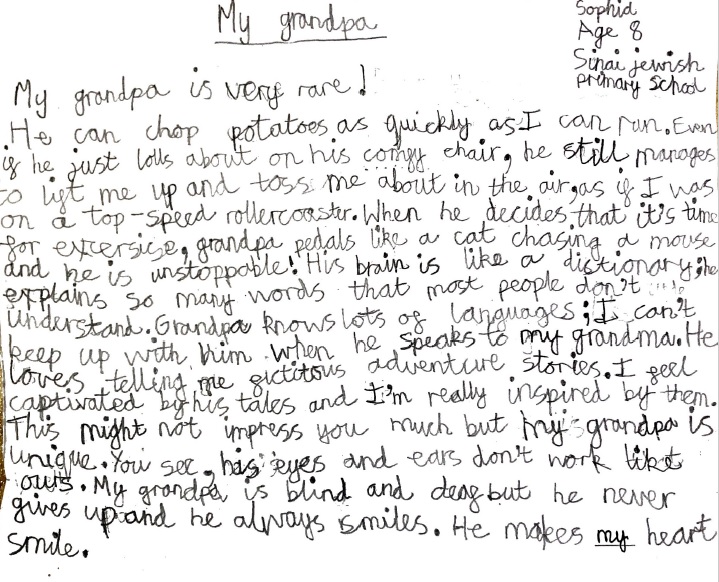 My grandpa
Sophia
Age 8
Sinai jewish
primary School
My grandpa is very rare!
He can chop potatoes as quickly as I can run. Even
if he just lolls about on his comfy chair, he still manages
to lift me up and toss me about in the air, as if I was
on a top-speed rollercoaster. When he decides that it's time
for excersise, grandpa pedals like a cat chasing a mouse
and he is unstoppable! His brain is like a dictionary; he
explains so many words that most people don't
understand. Grandpa knows lots of languages; I can't
keep up with him when he speaks to my grandma. He
loves telling me fictitous adventure stories. I feel
captivated by his tales and I'm really inspired by them.
This might not impress you much but my grandpa is
unique. You see, his eyes and ears don't work like
ours. My grandpa is blind and deaf but he never
gives up and he always smiles. He makes my heart
smile.